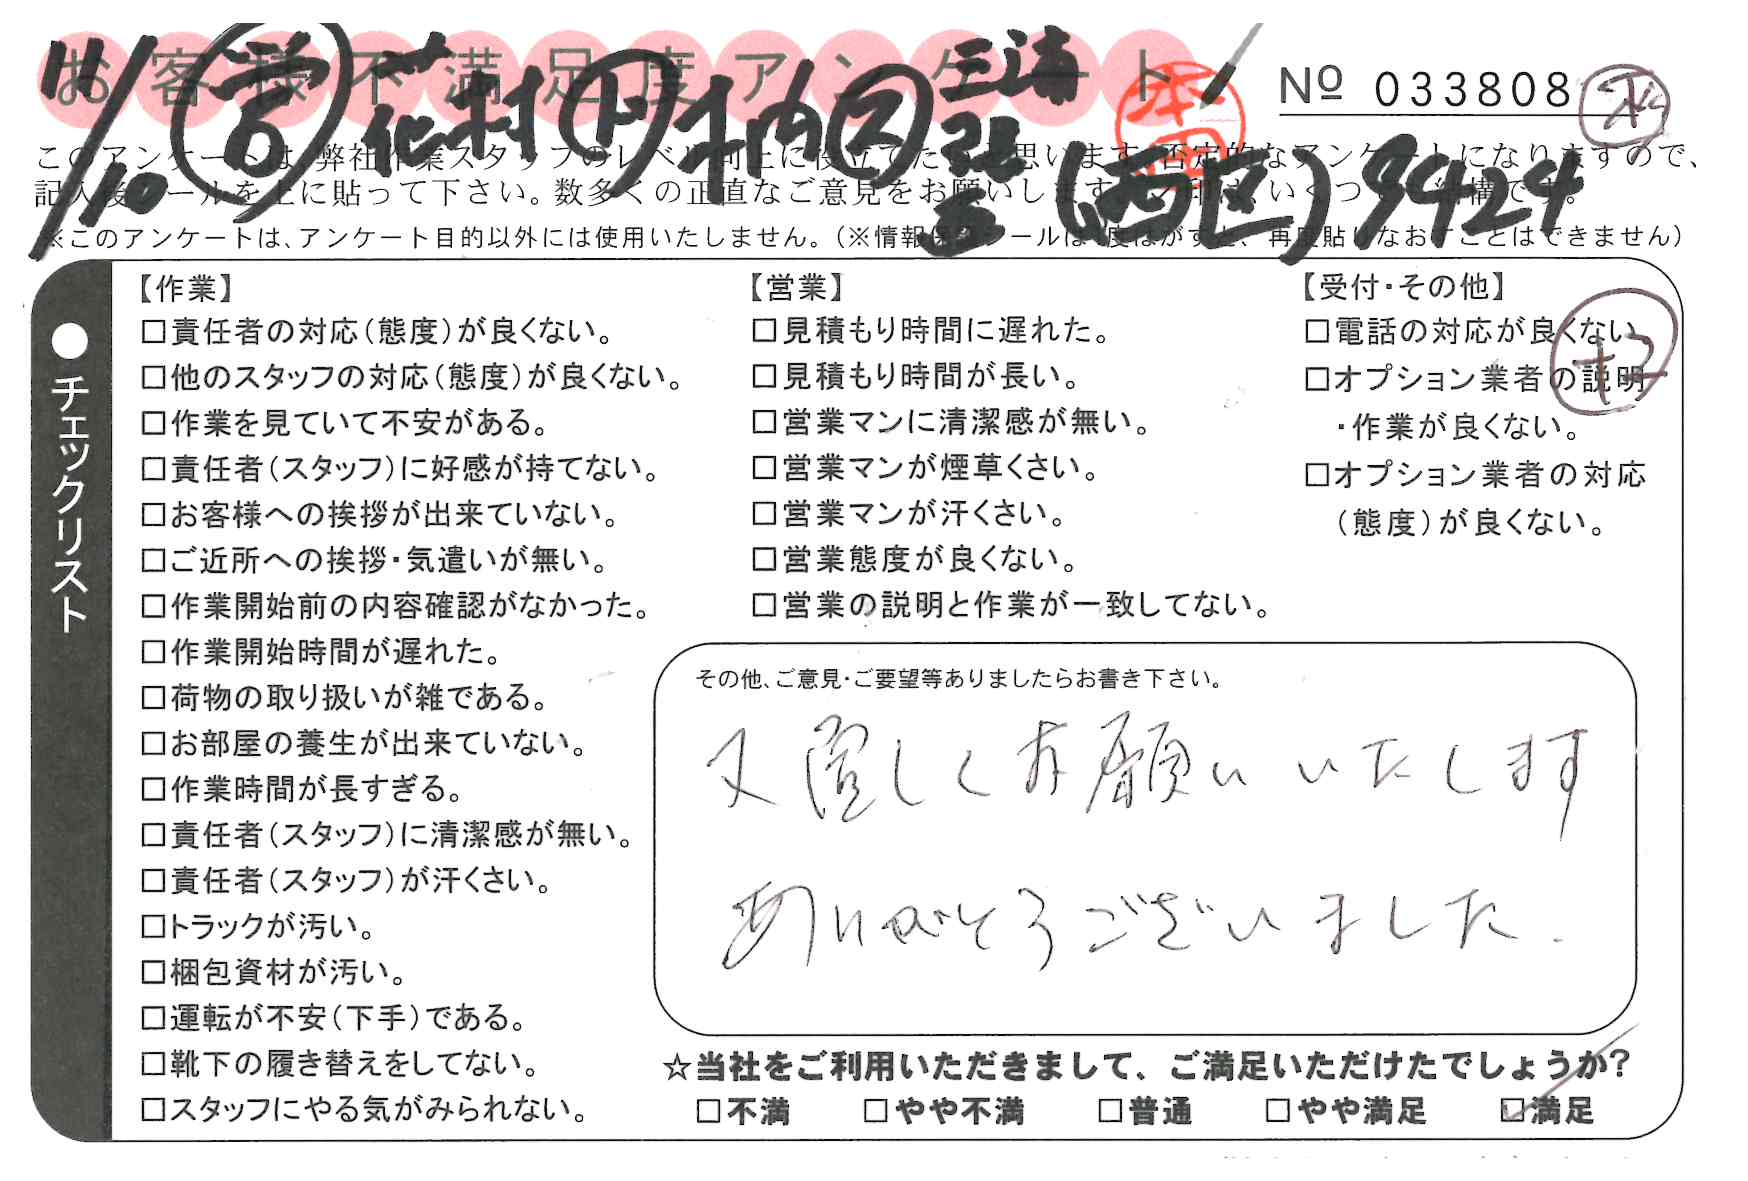 お客様不満足度アンケート
11/10 営 花村 ド 柚 ス 三浦
本田
№ 033808
このアンケートは、弊社作業スタッフのレベル向上に役立てたいと思います。否定的なアンケートになりますので、
記入後シールを上に貼って下さい。数多くの正直なご意見をお願いします。レ印は、いくつでも結構です。
(西区) 9424
※このアンケートは、アンケート目的以外には使用いたしません。(※情報保護シールは1度はがすと、再度貼りなおすことはできません)
●チェックリスト
【作業】
□責任者の対応(態度)が良くない。
□他のスタッフの対応(態度)が良くない。
□作業を見ていて不安がある。
□責任者(スタッフ)に好感が持てない。
□お客様への挨拶が出来ていない。
□ご近所への挨拶・気遣いが無い。
□作業開始前の内容確認がなかった。
□作業開始時間が遅れた。
□荷物の取り扱いが雑である。
□お部屋の養生が出来ていない。
□作業時間が長すぎる。
□責任者(スタッフ)に清潔感が無い。
□責任者(スタッフ)が汗くさい。
□トラックが汚い。
□梱包資材が汚い。
□運転が不安(下手)である。
□靴下の履き替えをしてない。
□スタッフにやる気がみられない。
【営業】
□見積もり時間に遅れた。
□見積もり時間が長い。
□営業マンに清潔感が無い。
□営業マンが煙草くさい。
□営業マンが汗くさい。
□営業態度が良くない。
□営業の説明と作業が一致してない。
【受付・その他】
□電話の対応が良くない。
□オプション業者の説明
・作業が良くない。
□オプション業者の対応
(態度)が良くない。
その他、ご意見・ご要望等ありましたらお書き下さい。
又宜しくお願いいたします
ありがとうございました.
☆当社をご利用いただきまして、ご満足いただけたでしょうか?
□不満 □やや不満 □普通 □やや満足 ☑満足